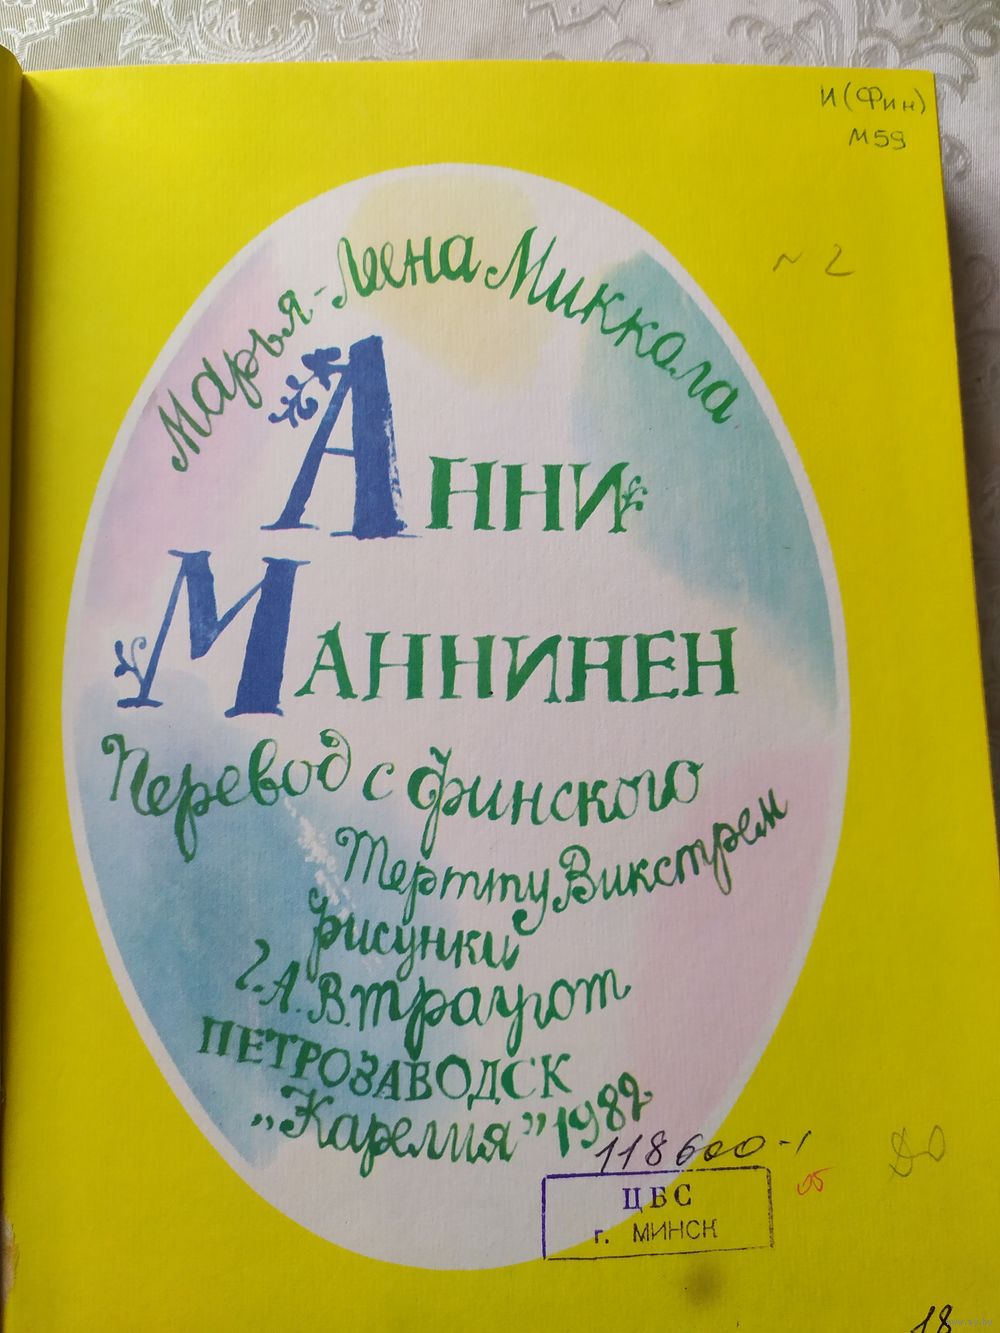 И(Фин)
М59
~ 2
Марья-Леена Миккола
Анни
Маннинен
Перевод с финского
Тертту Викстрем
рисунки
Г.А.В.Траугот
ПЕТРОЗАВОДСК
„Карелия” 1982
118600-1
ЦБС
г. МИНСК
18